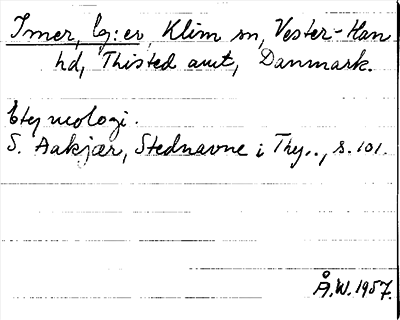 Imer, bg:er, Klim sn, Vester-Han
hd, Thisted amt, Danmark.
Etymologi.
S. Aakjær, Stednavne i Thy.., s. 101.
Å.W. 1957.